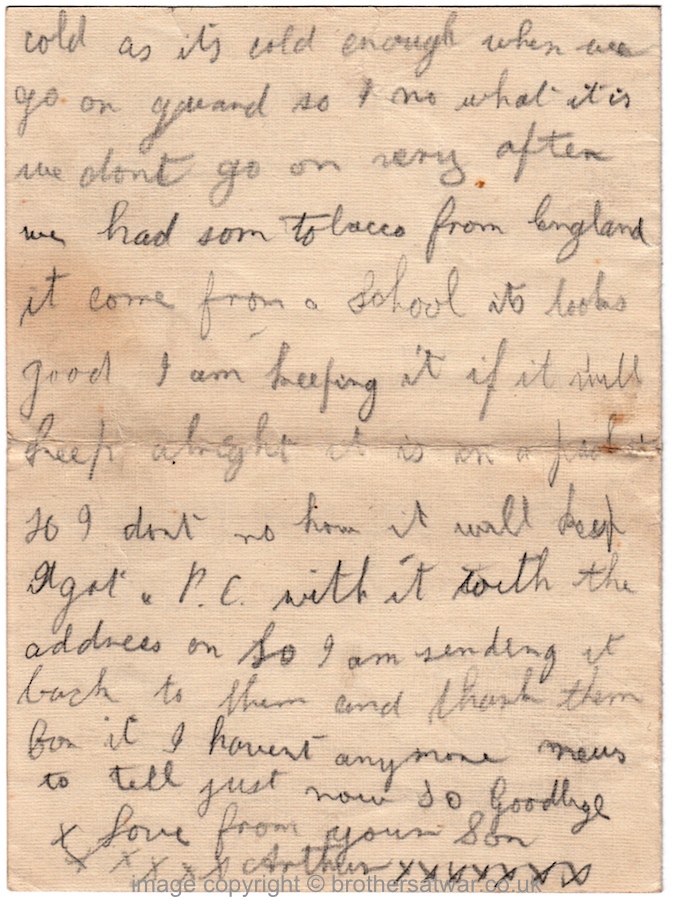 cold as its cold enough when we
go on guard so I no what it is
we dont go on very often
we had som tobacco from England
it come from a School its looks
good I am keeping it if it will
keep alright it is in a packit
so I dont no how it will keep
I got a P.C. with it with the
address on So I am sending it
back to them and thank them
for it I havent anymore news
to tell just now so Goodbye
x Love from your Son
x x x x x Arthur x x x x x x x x
image copyright © brothersatwar.co.uk